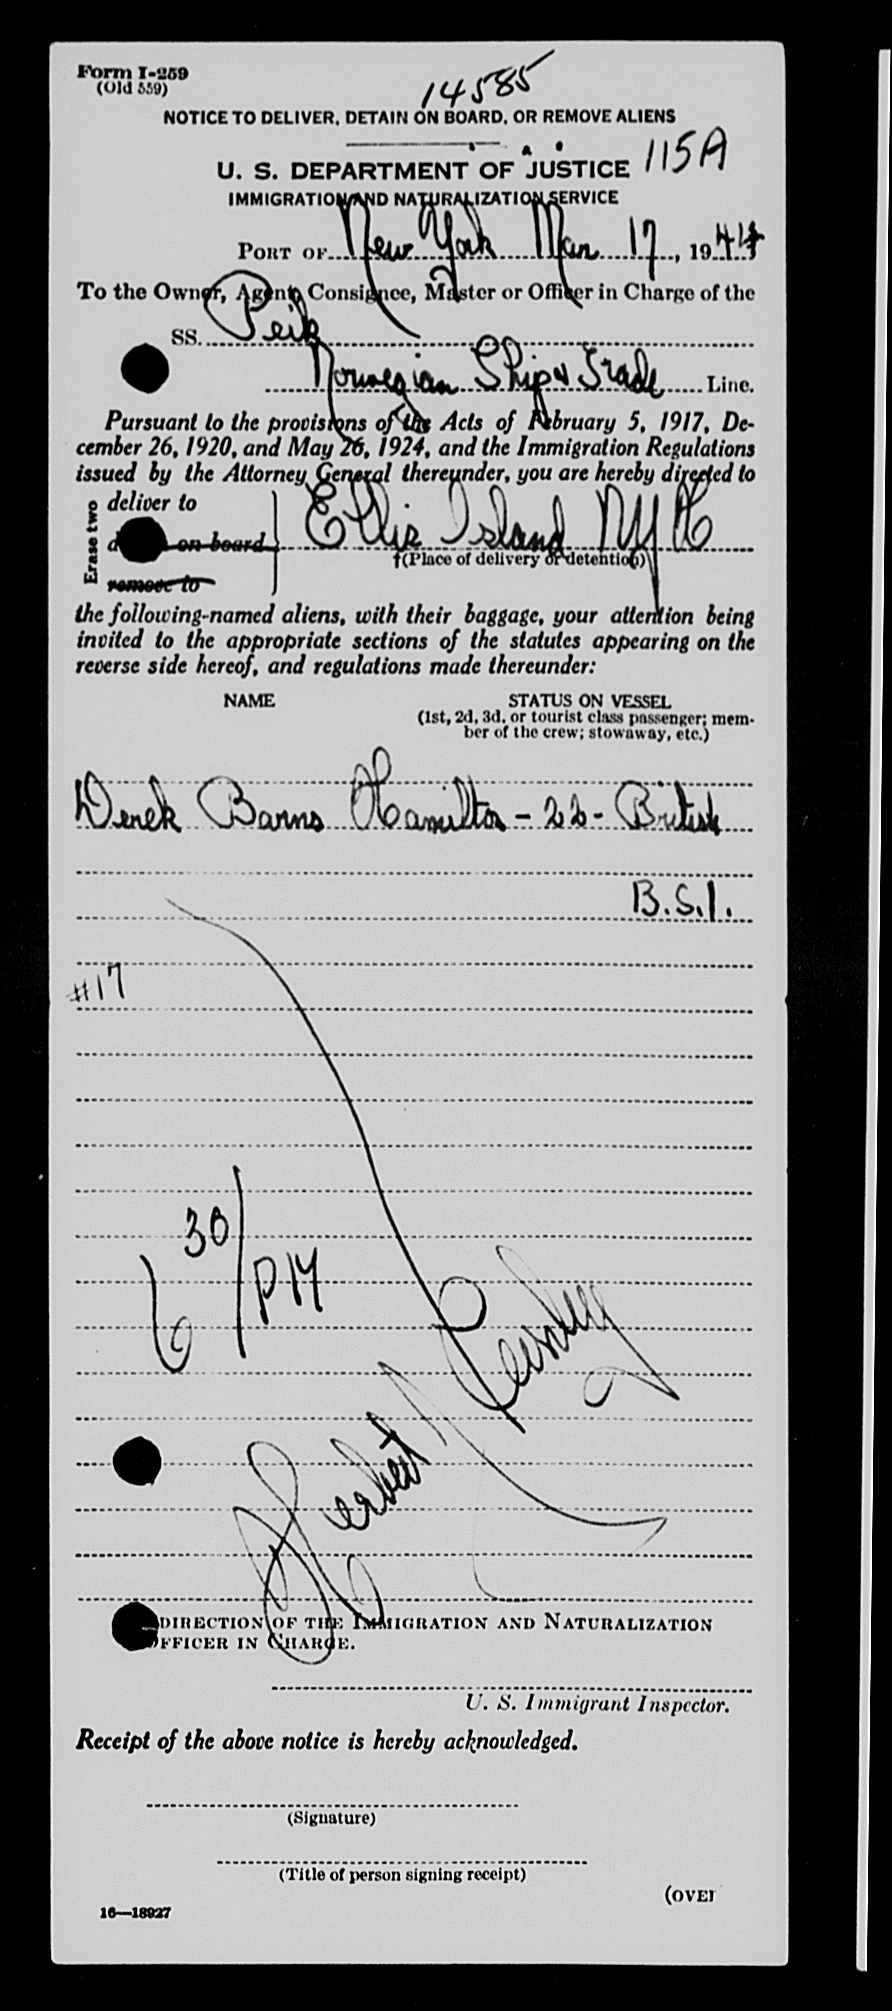 Form I-259
(Old 559)
14585
NOTICE TO DELIVER, DETAIN ON BOARD, OR REMOVE ALIENS
U. S. DEPARTMENT OF JUSTICE 115A
IMMIGRATION AND NATURALIZATION SERVICE
PORT OF New York Mar 17, 1944
To the Owner, Agent, Consignee, Master or Officer in Charge of the
SS. Peik
Norwegian Ship & Trade Line.
Pursuant to the provisions of the Acts of February 5, 1917, De-
cember 26, 1920, and May 26, 1924, and the Immigration Regulations
issued by the Attorney General thereunder, you are hereby directed to
Erase two
deliver to
on board Ellis Island NYH
†(Place of delivery or detention)
remove to
the following-named aliens, with their baggage, your attention being
invited to the appropriate sections of the statutes appearing on the
reverse side hereof, and regulations made thereunder:
NAME STATUS ON VESSEL
(1st, 2d, 3d, or tourist class passenger; mem-
ber of the crew; stowaway, etc.)
Derek Barns Hamilton - 22 - British
B.S.I.
#17
6 30/PM
Herbert
DIRECTION OF THE IMMIGRATION AND NATURALIZATION
OFFICER IN CHARGE.
U. S. Immigrant Inspector.
Receipt of the above notice is hereby acknowledged.
(Signature)
(Title of person signing receipt)
(OVER
16—18927